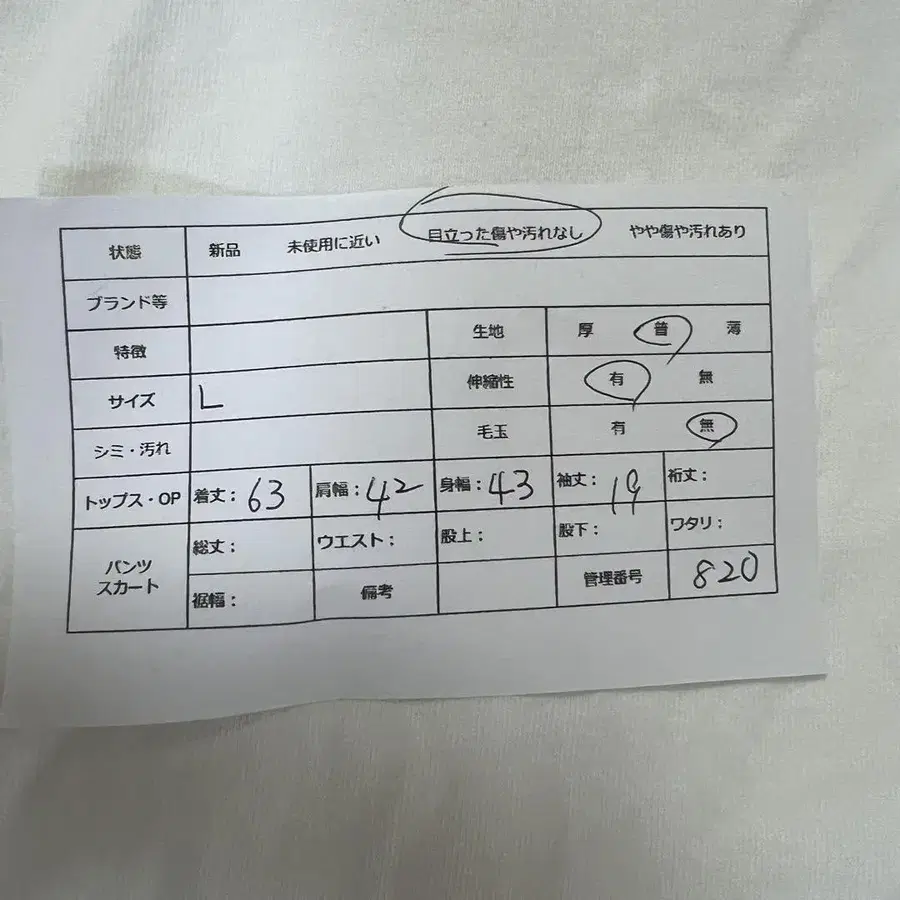 状態 新品 未使用に近い 目立った傷や汚れなし やや傷や汚れあり
ブランド等
特徴 生地 厚 普 薄
サイズ L 伸縮性 有 無
シミ・汚れ 毛玉 有 無
トップス・OP 着丈: 63 肩幅: 42 身幅: 43 袖丈: 19 裄丈:
パンツ
スカート
総丈: ウエスト: 股上: 股下: ワタリ:
裾幅: 備考 管理番号 820